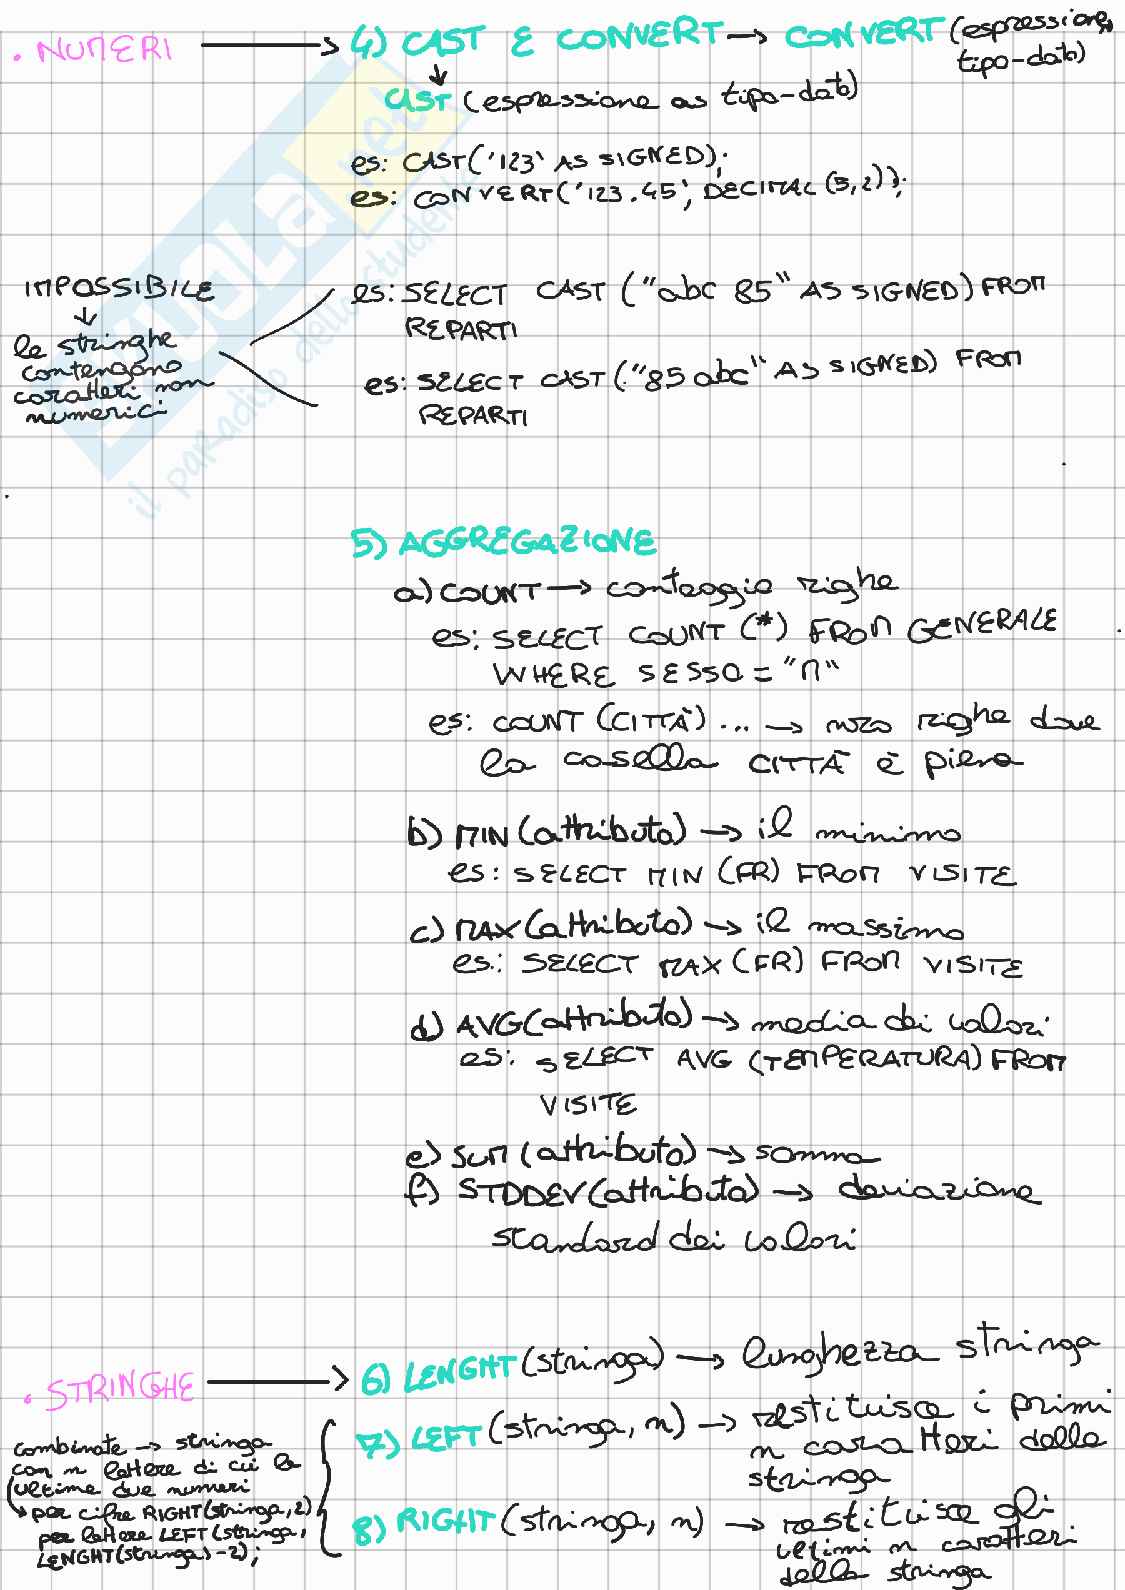 . NUMERI → 4) CAST E CONVERT → CONVERT (espressione,
tipo-dato)
CAST (espressione as tipo-dato)
es: CAST('123' AS SIGNED);
es: CONVERT('123.45', DECIMAL (5,2));
IMPOSSIBILE
↓
le stringhe
contengono
caratteri non
numerici
es: SELECT CAST ("abc 85" AS SIGNED) FROM
REPARTI
es: SELECT CAST ("85 abc" AS SIGNED) FROM
REPARTI
SKUOLA.net
il paradiso dello studente
5) AGGREGAZIONE
a) COUNT → conteggio righe
es: SELECT COUNT (*) FROM GENERALE
WHERE SESSO = "M"
es: COUNT (CITTÀ) ... → nuro righe dove
la casella CITTÀ è piena
b) MIN (attributo) → il minimo
es: SELECT MIN (FR) FROM VISITE
c) MAX (attributo) → il massimo
es: SELECT MAX (FR) FROM VISITE
d) AVG (attributo) → media dei valori
es: SELECT AVG (TEMPERATURA) FROM
VISITE
e) SUM (attributo) → somma
f) STDDEV (attributo) → deviazione
standard dei valori
. STRINGHE → 6) LENGHT (stringa) → lunghezza stringa
7) LEFT (stringa, n) → restituisce i primi
n caratteri della
stringa
8) RIGHT (stringa, n) → restituisce gli
ultimi n caratteri
della stringa
combinate → stringa
con n lettere di cui le
ultime due numeri
↳ per cifre RIGHT(stringa, 2)
per lettere LEFT(stringa,
LENGHT(stringa) -2);